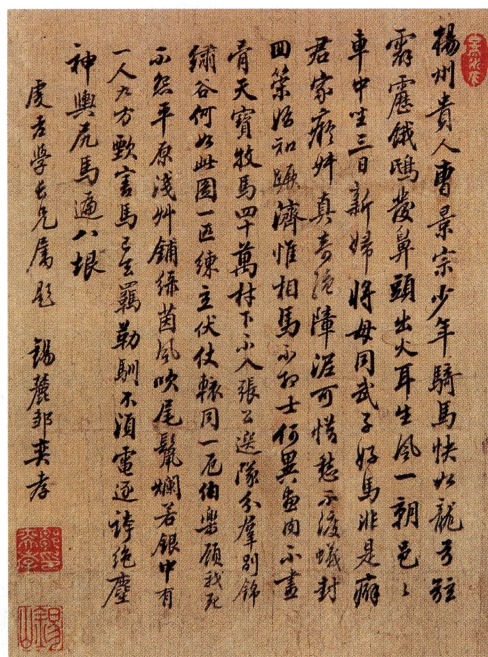 揚州貴人曹景宗少年騎馬快如龍弓弦
霹靂餓鴟發鼻頭出火耳生風一朝邑〻
車中坐三日新婦將毋同武子好馬非是癖
君家癡叔真奇絕障泥可惜愁不渡蟻封
回策始知濟惟相馬不相士何異畫肉不畫
骨天寶牧馬四十萬材下不入張公選隊分羣別錦
繡谷何如此圖一匹練立伏仗轅同一厄伯樂顧我死
不怨平原淺艸鋪綠茵風吹尾鬣爛若銀中有
一人九方甄害馬已去羈勒馴不須電逐誇絕塵
神輿尻馬遍八垠
虞學長兄屬題 錫麓鄒奕孝
錫山